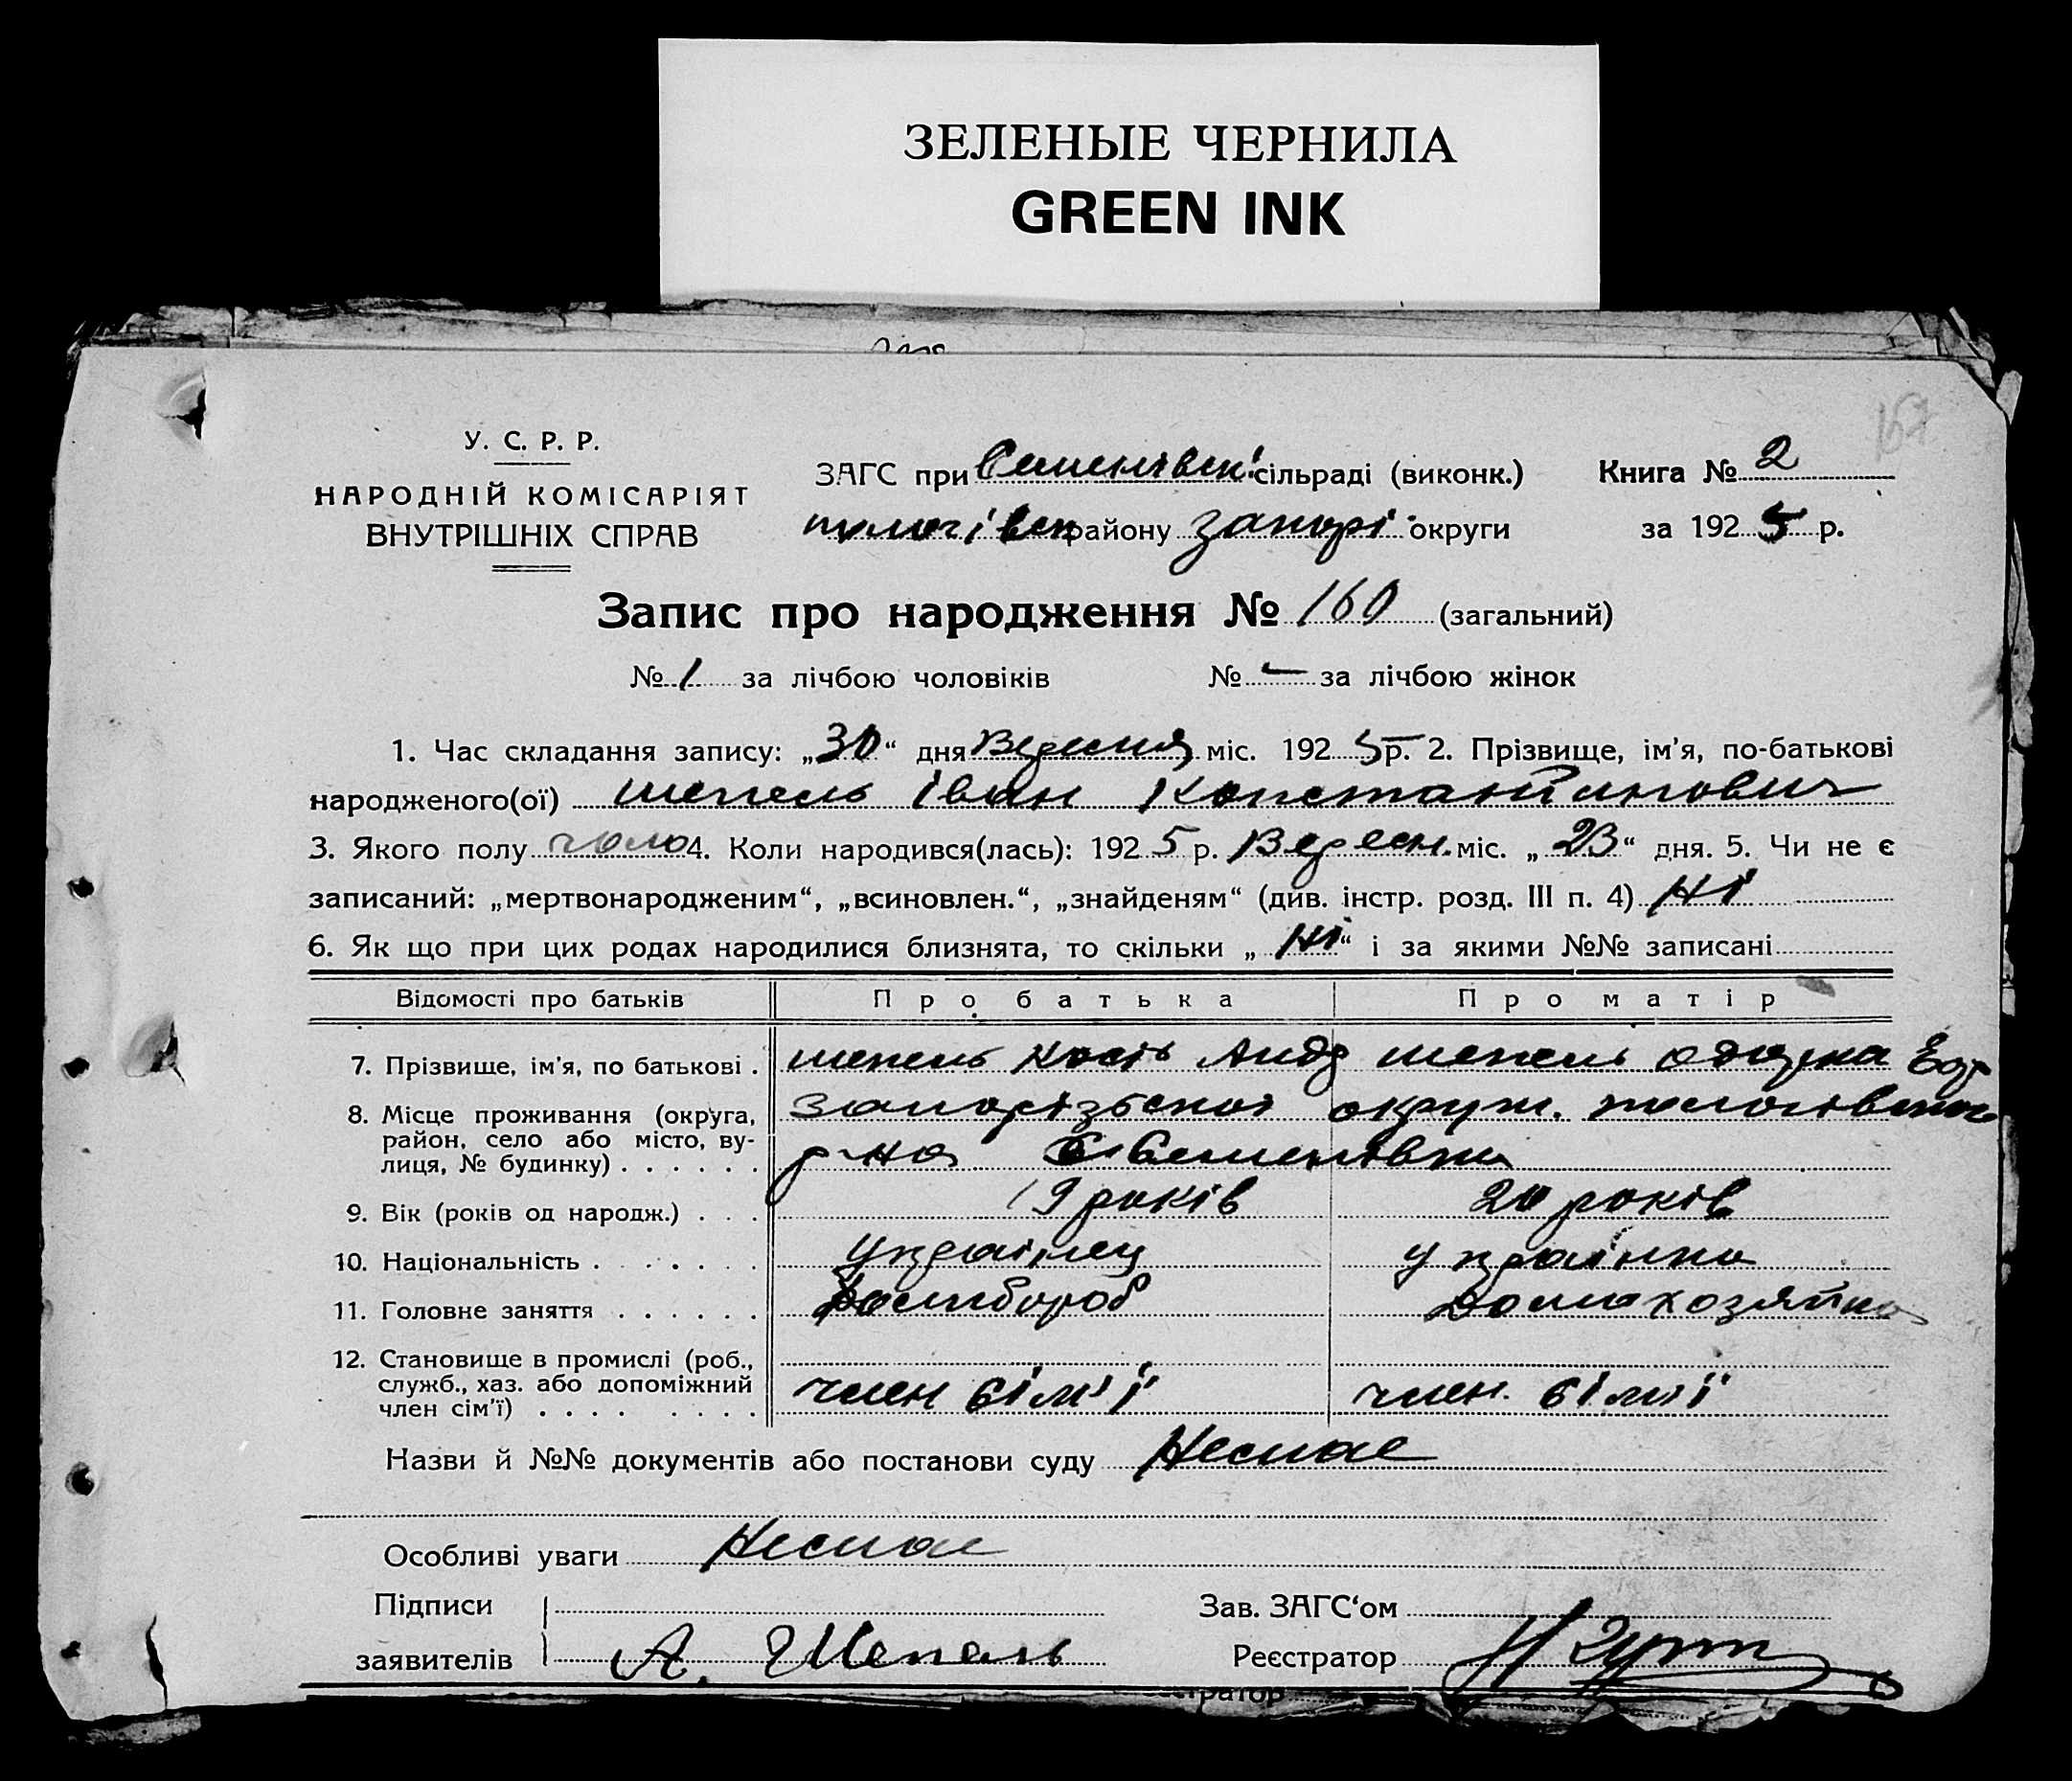 ЗЕЛЕНЫЕ ЧЕРНИЛА
GREEN INK
157
У. С. Р. Р.
НАРОДНІЙ КОМІСАРІЯТ
ВНУТРІШНІХ СПРАВ
ЗАГС при Семенівські сільраді (виконк.) Книга № 2
пологівск району запорі округи за 1925 р.
Запис про народження № 160 (загальний)
№ 1 за лічбою чоловіків № — за лічбою жінок
1. Час складання запису: „30“ дня Вересня міс. 1925 р. 2. Прізвище, ім'я, по-батькові
народженого(ої) шепель іван Константинович
3. Якого полу чоло 4. Коли народився(лась): 1925 р. Вересн. міс. „23“ дня. 5. Чи не є
записаний: „мертвонародженим“, „всиновлен.“, „знайденям“ (див. інстр. розд. III п. 4) Ні
6. Як що при цих родах народилися близнята, то скільки „Ні“ і за якими №№ записані
Відомості про батьків Про батька Про матір
7. Прізвище, ім'я, по батькові . шепель Кость Андр шепель одарка Егр
8. Місце проживання (округа, запорізської округ. пологівског
район, село або місто, ву- р-на с Семенівки
лиця, № будинку) . . . . . .
9. Вік (років од народж.) . . . 19 років 20 років
10. Національність . . . . . . . українец українка
11. Головне заняття . . . . . . Хлібороб Домахозяйка
12. Становище в промислі (роб.,
служб., хаз. або допоміжний член сім'ї член. сім'ї
член сім'ї) . . . . . . . .
Назви й №№ документів або постанови суду Немае
Особливі уваги Немае
Підписи Зав. ЗАГС'ом
заявителів А. Шепель Реєстратор
стратор